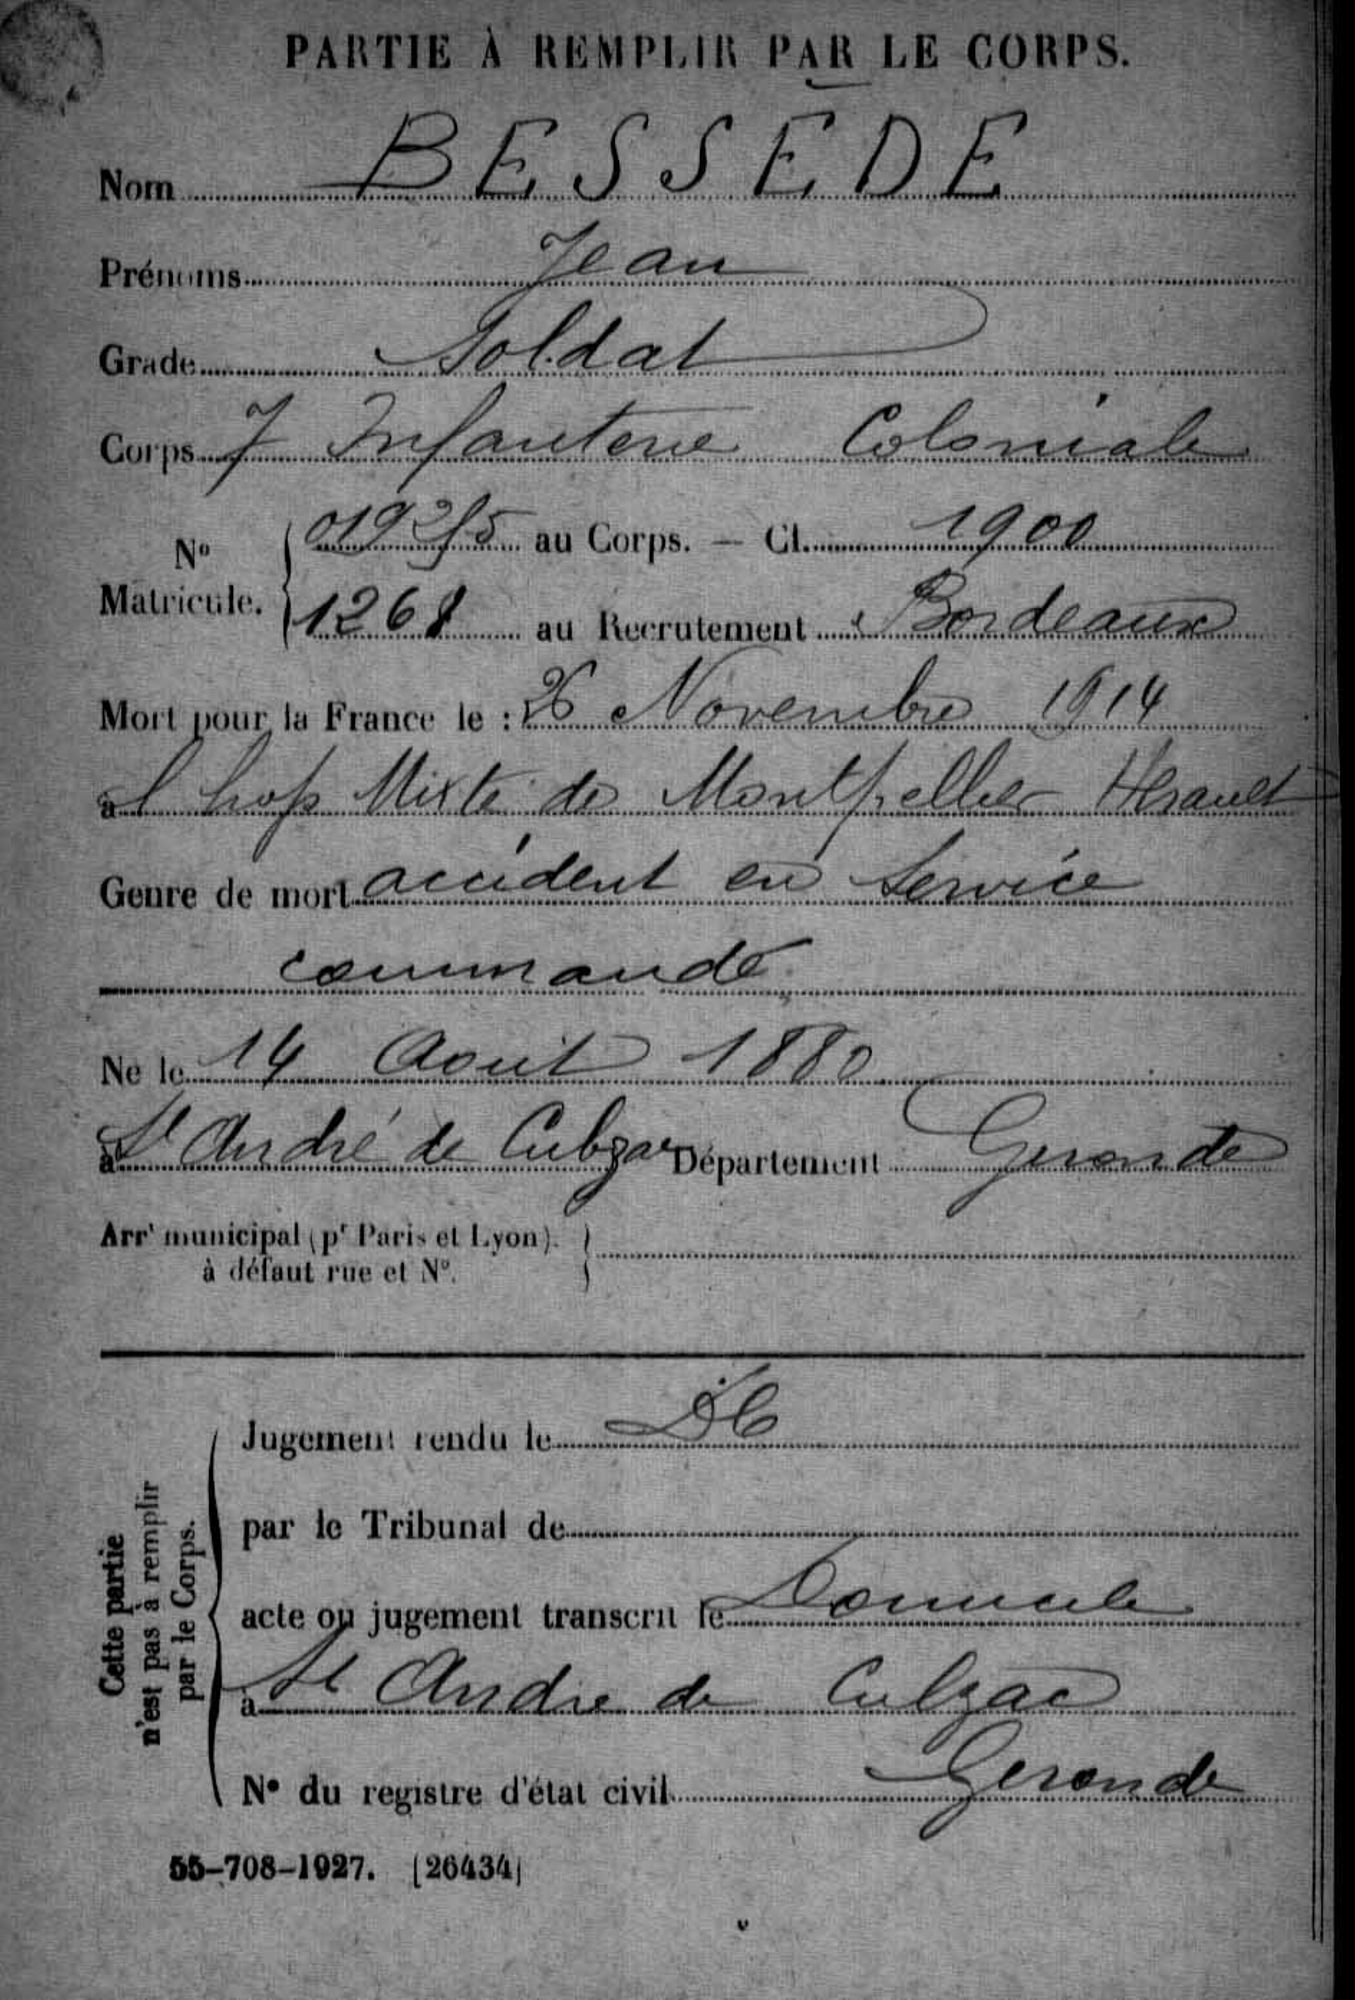 PARTIE À REMPLIR PAR LE CORPS.
Nom BESSÈDE
Prénoms Jean
Grade Soldat
Corps 7 Infanterie Coloniale
Nº Matricule. { au Corps. — Cl. 1900
1268 au Recrutement Bordeaux
Mort pour la France le : 26 Novembre 1914
à l'hop Mixte de Montpellier Hérault
Genre de mort accident en service
commandé
Né le 14 Aout 1880
à St André de Cubzac Département Gironde
Arrt municipal (pr Paris et Lyon). }
à défaut rue et Nº.
Cette partie
n'est pas à remplir
par le Corps.
Jugement rendu le
par le Tribunal de
acte ou jugement transcrit le Domicile
à St Andre de Cubzac
Nº du registre d'état civil Gironde
55-708-1927. [26434]